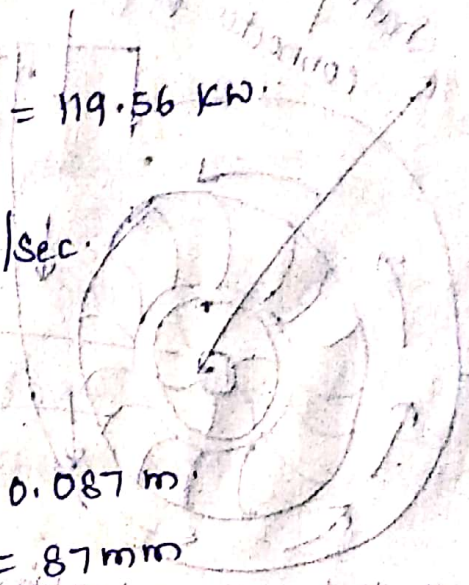 = 119.56 KW.
/sec.
0.087 m
= 87mm